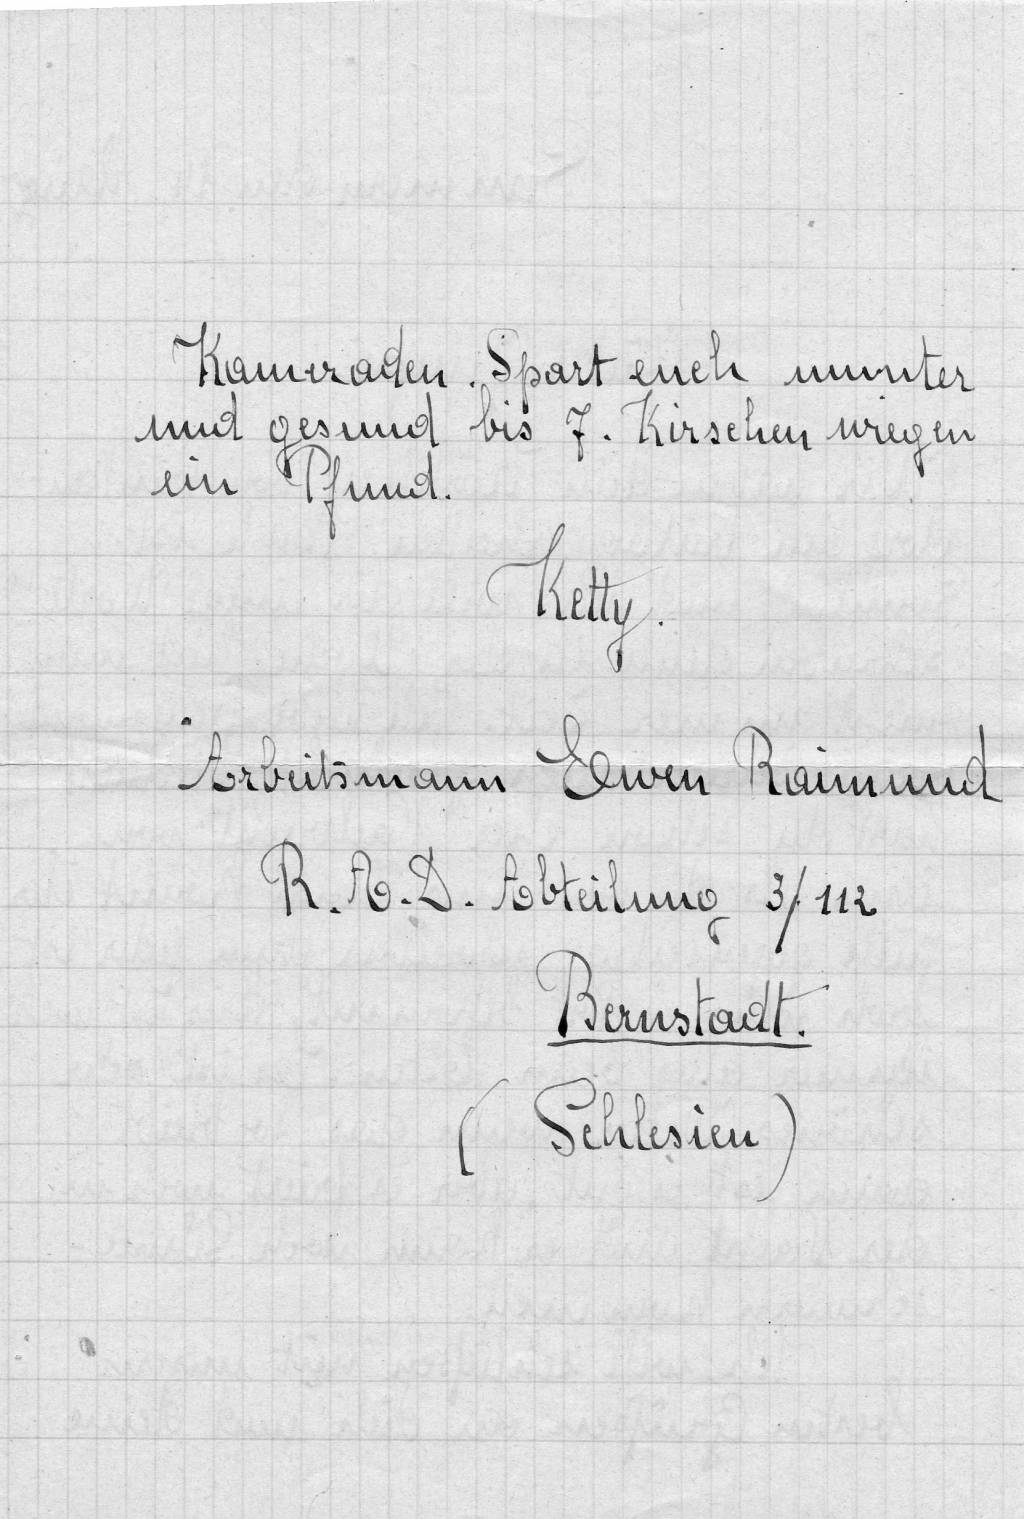 Kameraden. Spart euch munter
und gesund bis 7. Kirschen wiegen
ein Pfund.
Ketty.
Arbeitsmann Ewen Raimund
R.A.D. Abteilung 3/112
Bernstadt.
(Schlesien)